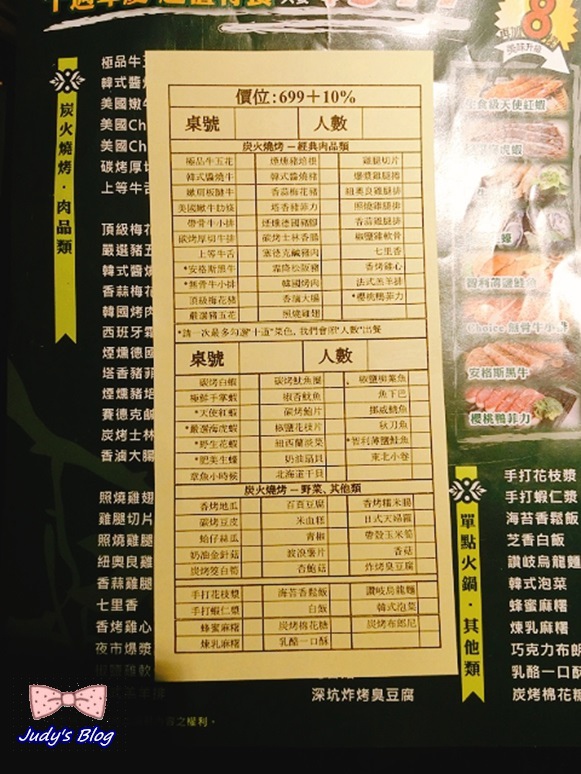 8
美味升級
炭火燒烤・肉品類
韓式醬燒
美國嫩牛
美國Ch
美國Ch
碳烤厚切
上等牛舌
頂級梅花
嚴選豬五
韓式醬燒
香蒜梅花
韓國烤肉
西班牙霜
煙燻德國
塔香豬菲
煙燻豬培
賽德克鹹
炭烤士林
香滷大腸
照燒雞翅
雞腿切片
照燒雞腿
紐奧良雞
香蒜雞腿
七里香
香烤雞心
夜市爆漿
價位:699+10%
桌號 人數
炭火燒烤－經典肉品類
極品牛五花 煙燻豬培根 雞腿切片
韓式醬燒牛 韓式醬燒豬 爆漿雞腿捲
嫩肩板腱牛 香蒜梅花豬 紐奧良雞腿排
美國嫩牛肋條 塔香豬菲力 照燒雞腿排
帶骨牛小排 煙燻德國豬腳 香蒜雞腿排
碳烤厚切牛排 碳烤士林香腸 椒鹽雞軟骨
上等牛舌 賽德克鹹豬肉 七里香
*安格斯黑牛 霜降松阪豬 香烤雞心
*無骨牛小排 韓國烤肉 法式羔羊排
頂級梅花豬 香滷大腸 *櫻桃鴨菲力
嚴選豬五花 照燒雞翅
*請一次最多勾選"十道"菜色，我們會照"人數"出餐
桌號 人數
碳烤白蝦 碳烤魷魚圈 椒鹽柳葉魚
極鮮手掌蝦 椒香魷魚 魚下巴
*天使紅蝦 碳烤鮑片 挪威鯖魚
*嚴選海虎蝦 椒鹽花枝片 秋刀魚
*野生花蝦 紐西蘭淡菜 *智利薄鹽鮭魚
*肥美生蠔 奶油扇貝 東北小卷
章魚小時候 北海道干貝
炭火燒烤－野菜、其他類
香烤地瓜 百頁豆腐 香烤糯米腸
碳烤豆皮 米血糕 日式天婦羅
蛤仔絲瓜 青椒 帶殼玉米筍
奶油金針菇 波浪薯片 香菇
炭烤筊白筍 杏鮑菇 炸烤臭豆腐
手打花枝漿 海苔香鬆飯 讚岐烏龍麵
手打蝦仁漿 白飯 韓式泡菜
蜂蜜麻糬 炭烤棉花糖 炭烤布郎尼
煉乳麻糬 乳酪一口酥
生食級天使紅蝦
智利薄鹽鮭魚
Choice 無骨牛小排
安格斯黑牛
櫻桃鴨菲力
單點火鍋・其他類
手打花枝漿
手打蝦仁漿
海苔香鬆飯
芝香白飯
讚岐烏龍麵
韓式泡菜
蜂蜜麻糬
煉乳麻糬
巧克力布朗
乳酪一口酥
炭烤棉花糖
深坑炸烤臭豆腐
之權利。
Judy's Blog